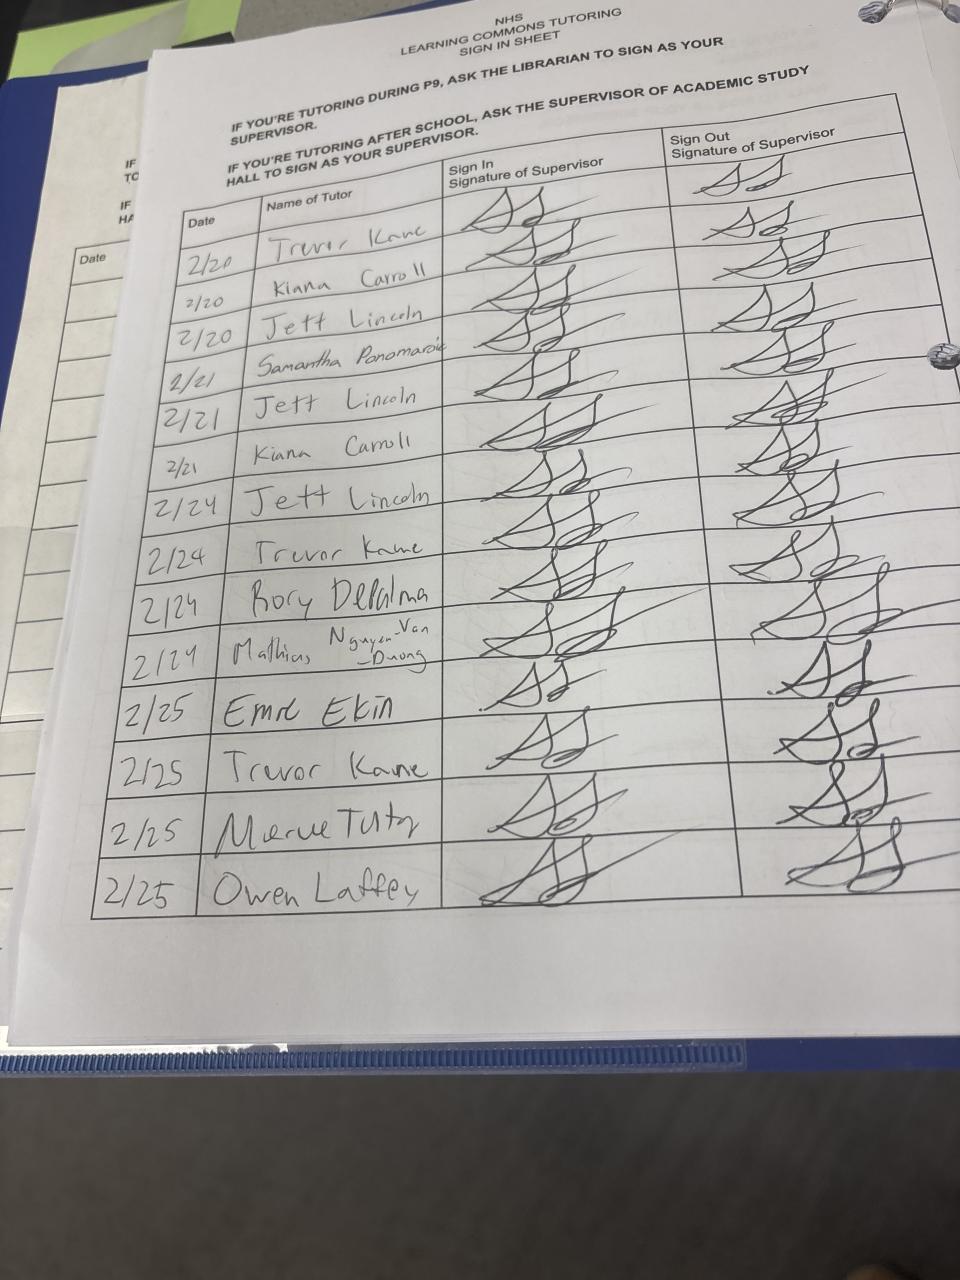 NHS
LEARNING COMMONS TUTORING
SIGN IN SHEET
IF YOU'RE TUTORING DURING P9, ASK THE LIBRARIAN TO SIGN AS YOUR
SUPERVISOR.
IF YOU'RE TUTORING AFTER SCHOOL, ASK THE SUPERVISOR OF ACADEMIC STUDY
HALL TO SIGN AS YOUR SUPERVISOR.
IF
TO
IF
HA
Date
Date Name of Tutor Sign In Signature of Supervisor Sign Out Signature of Supervisor
2/20 Trevor Kane
2/20 Kiana Carroll
2/20 Jett Lincoln
2/21 Samantha
2/21 Jett Lincoln
2/21 Kiana Carroll
2/24 Jett Lincoln
2/24 Trevor Kane
2/24 Rory DePalma
2/24 Mathias Nguyen-Van
-Duong
2/25 Emre Ekin
2/25 Trevor Kane
2/25 Merve
2/25 Owen Laffey